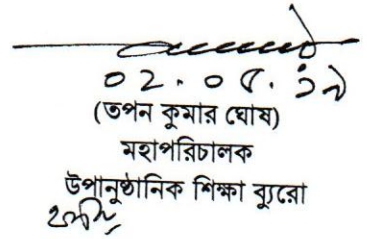 ০২.০৫.১৯
(তপন কুমার ঘোষ)
মহাপরিচালক
উপানুষ্ঠানিক শিক্ষা ব্যুরো